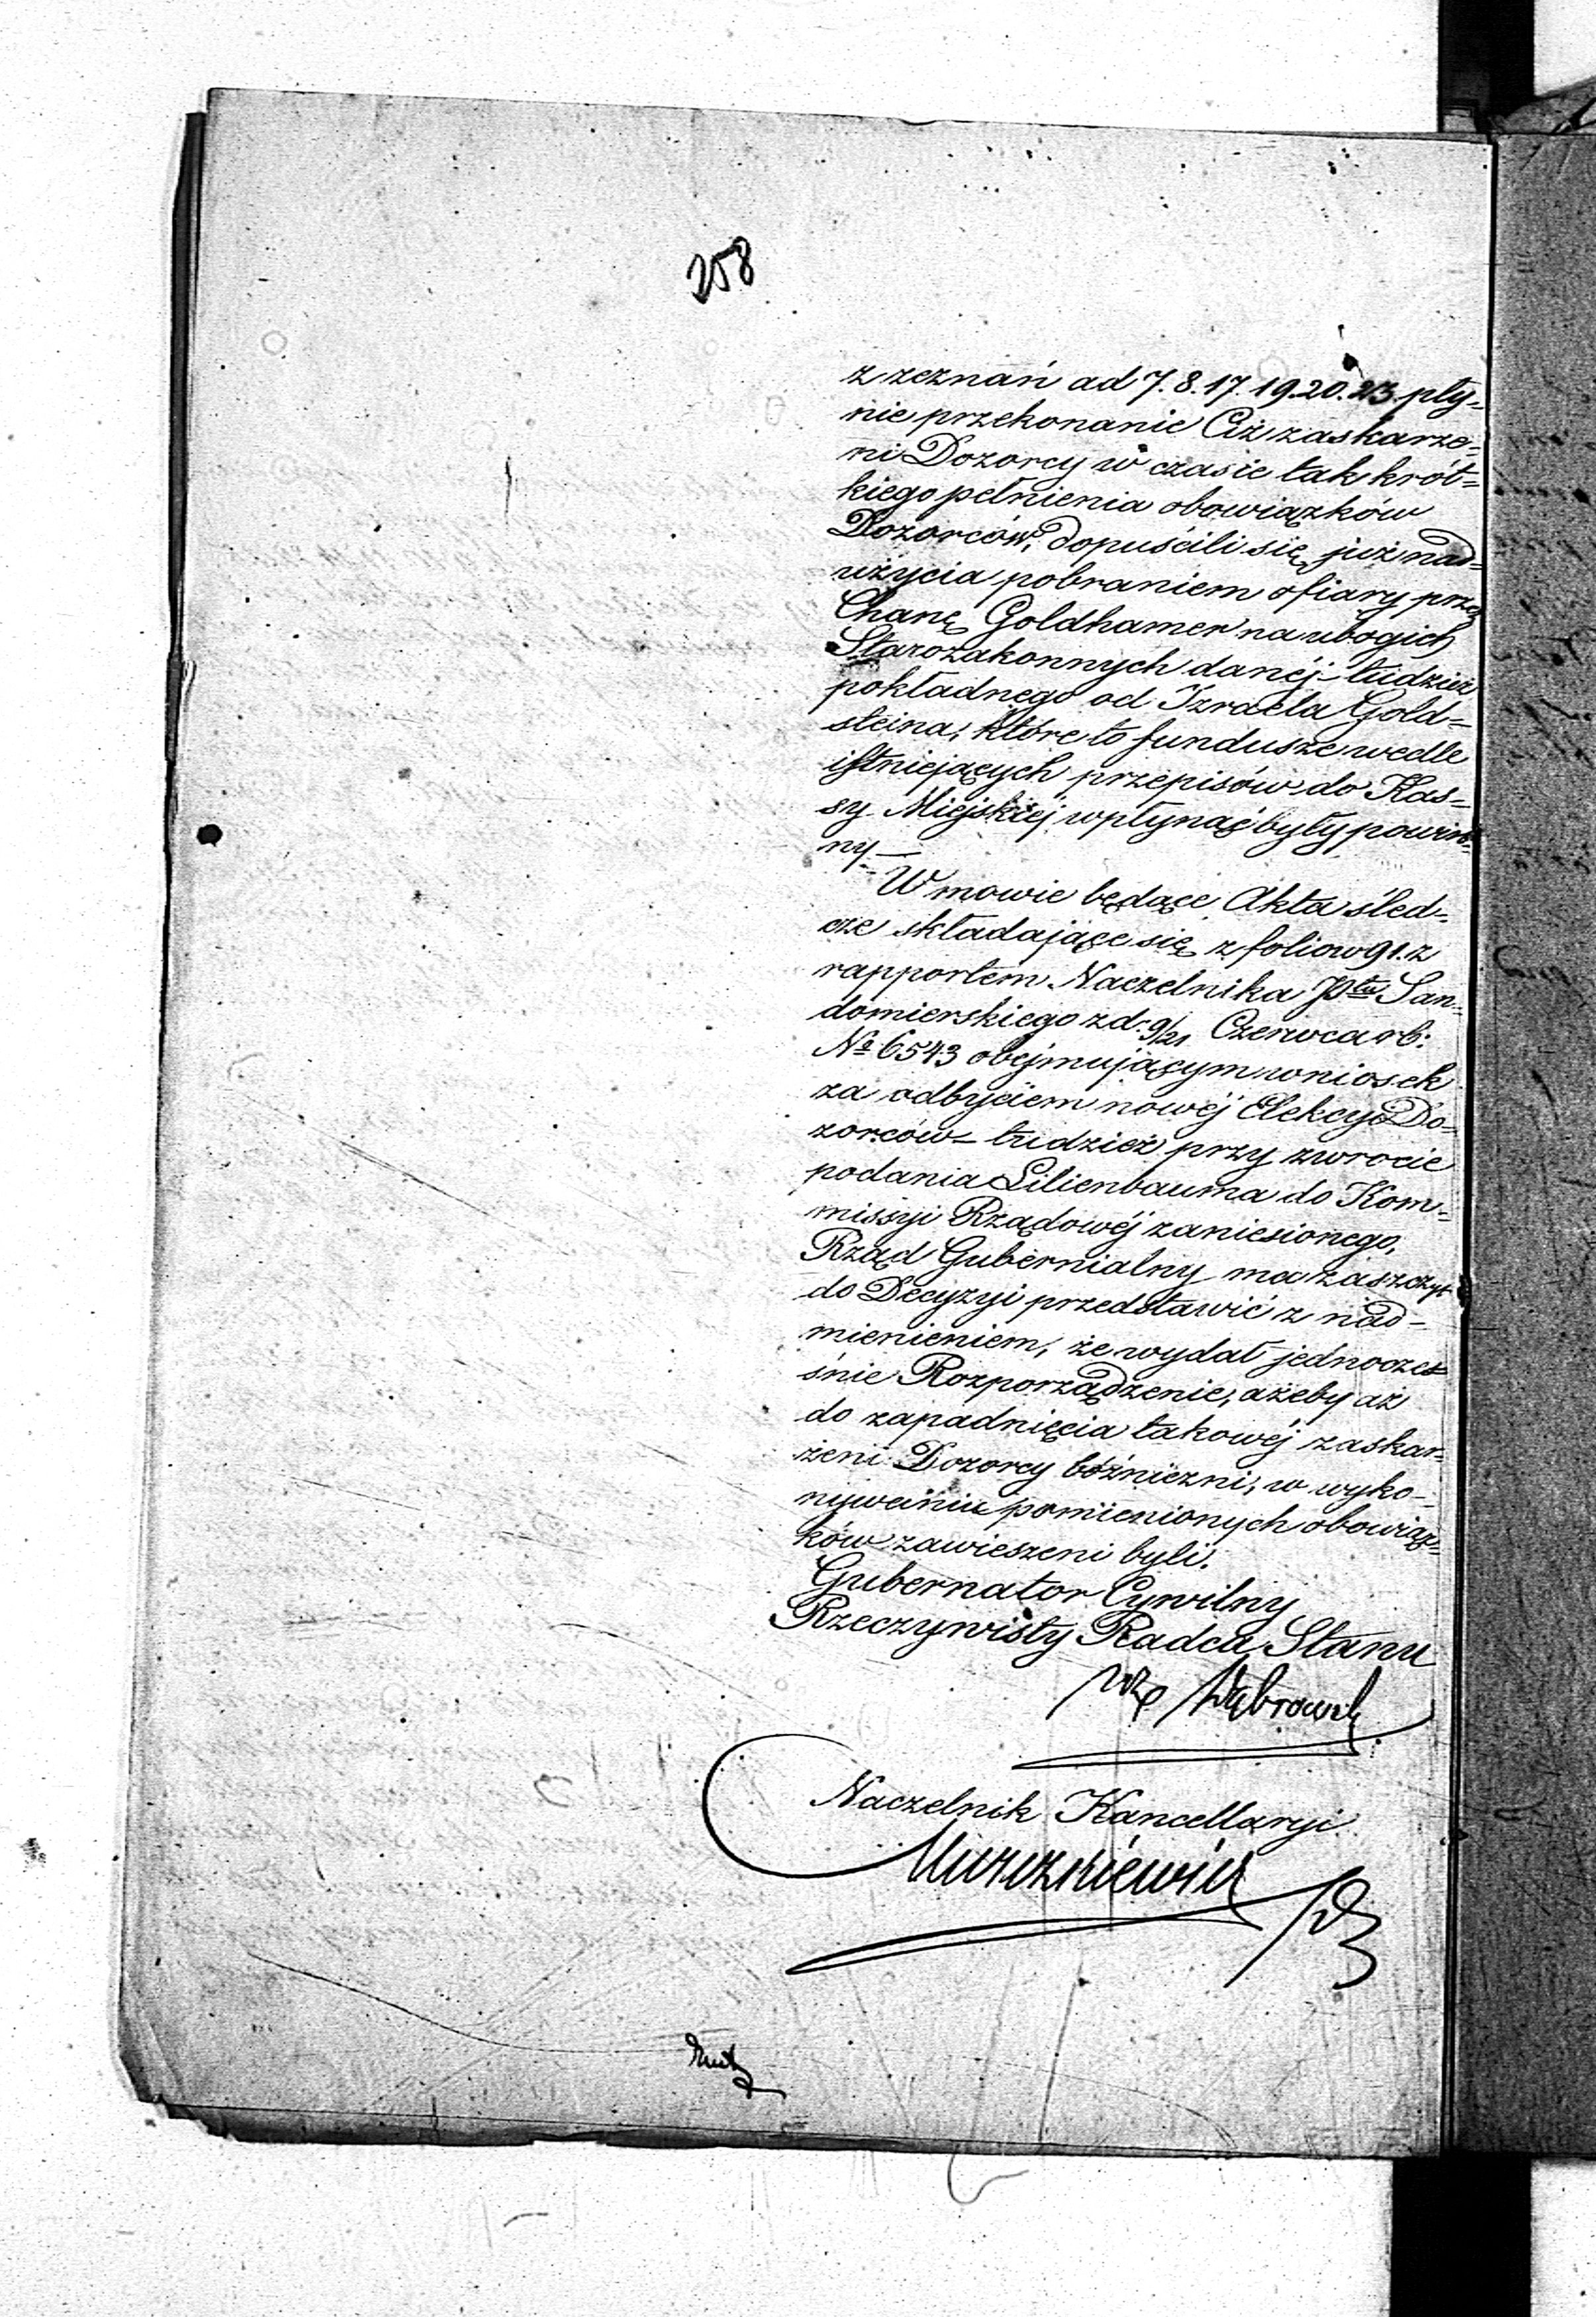 258
z zeznań ad 7. 8. 17. 19. 20. 23. pły-
nie przekonanie Ciż zaskarże-
ni Dozorcy w czasie tak krót-
kiego pełnienia obowiązków
Dozorców, dopuścili się już nad-
użycia pobraniem ofiary przez
Chanę Goldhamer na ubogich
Starozakonnych danéj- tudzież
pokładnego od Izraela Gold-
steina, które to fundusze wedle
istniejących przepisów do Kas-
sy Miejskiéj wpłynąć były powin-
ny.-
W mowie będące Akta śled-
cze składające się z foliow 91. z
rapportem Naczelnika Ptu San-
domierskiego z d. 9/21 Czerwca rb:
No 6543 obejmującym wniosek
za odbyciem nowéj Elekcyi Do-
zorców- tudzież przy zwrocie
podania Lilienbauma do Kom-
missyi Rządowéj zaniesionego,
Rząd Gubernialny ma zaszczyt
do Decyzyi przedstawić z nad-
mienieniem, że wydał jednocze-
śnie Rozporządzenie, ażeby aż
do zapadnięcia takowéj zaskar-
żeni Dozorcy bóźniczni, w wyko-
nywaniu pomienionych obowiąz-
ków zawieszeni byli.
Gubernator Cywilny
Rzeczywisty Radca Stanu
Naczelnik Kancellaryi